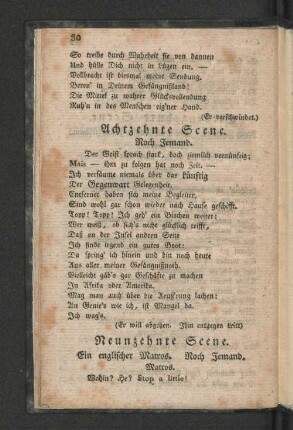 30
So weihe durch Wahrheit sie von dannen
Und hülle Dich nicht in Lügen ein. —
Vollbracht ist diesmal meine Sendung.
Bereu' in Deinem Gefängnißland!
Die Mittel zu wahrer Glücksvollendung
Ruh'n in des Menschen eig'ner Hand.
(Er verschwindet.)
Achtzehnte Scene.
Noch Jemand.
Der Geist sprach stark, doch ziemlich vernünftig;
Mais — ihm zu folgen hat noch Zeit. —
Ich versäume niemals über das künftig
Der Gegenwart Gelegenheit.
Entfernet haben sich meine Begleiter,
Sind wohl gar schon wieder nach Hause geschifft.
Topp! Topp! Ich geh' ein Bischen weiter;
Wer weiß, ob sich's nicht glücklich trifft,
Daß an der Insel andern Seite
Ich finde irgend ein gutes Boot:
Da spring' ich hinein und bin noch heute
Aus aller meiner Gefängnißnoth.
Vielleicht gäb's gar Geschäfte zu machen
In Afrika oder Amerika.
Mag man auch über die Aeußerung lachen:
An Genie's wie ich, ist Mangel da.
Ich wag's.
(Er will abgehen. Ihm entgegen tritt)
Neunzehnte Scene.
Ein englischer Matros. Noch Jemand.
Matros.
Wohin? He? Stop a little!